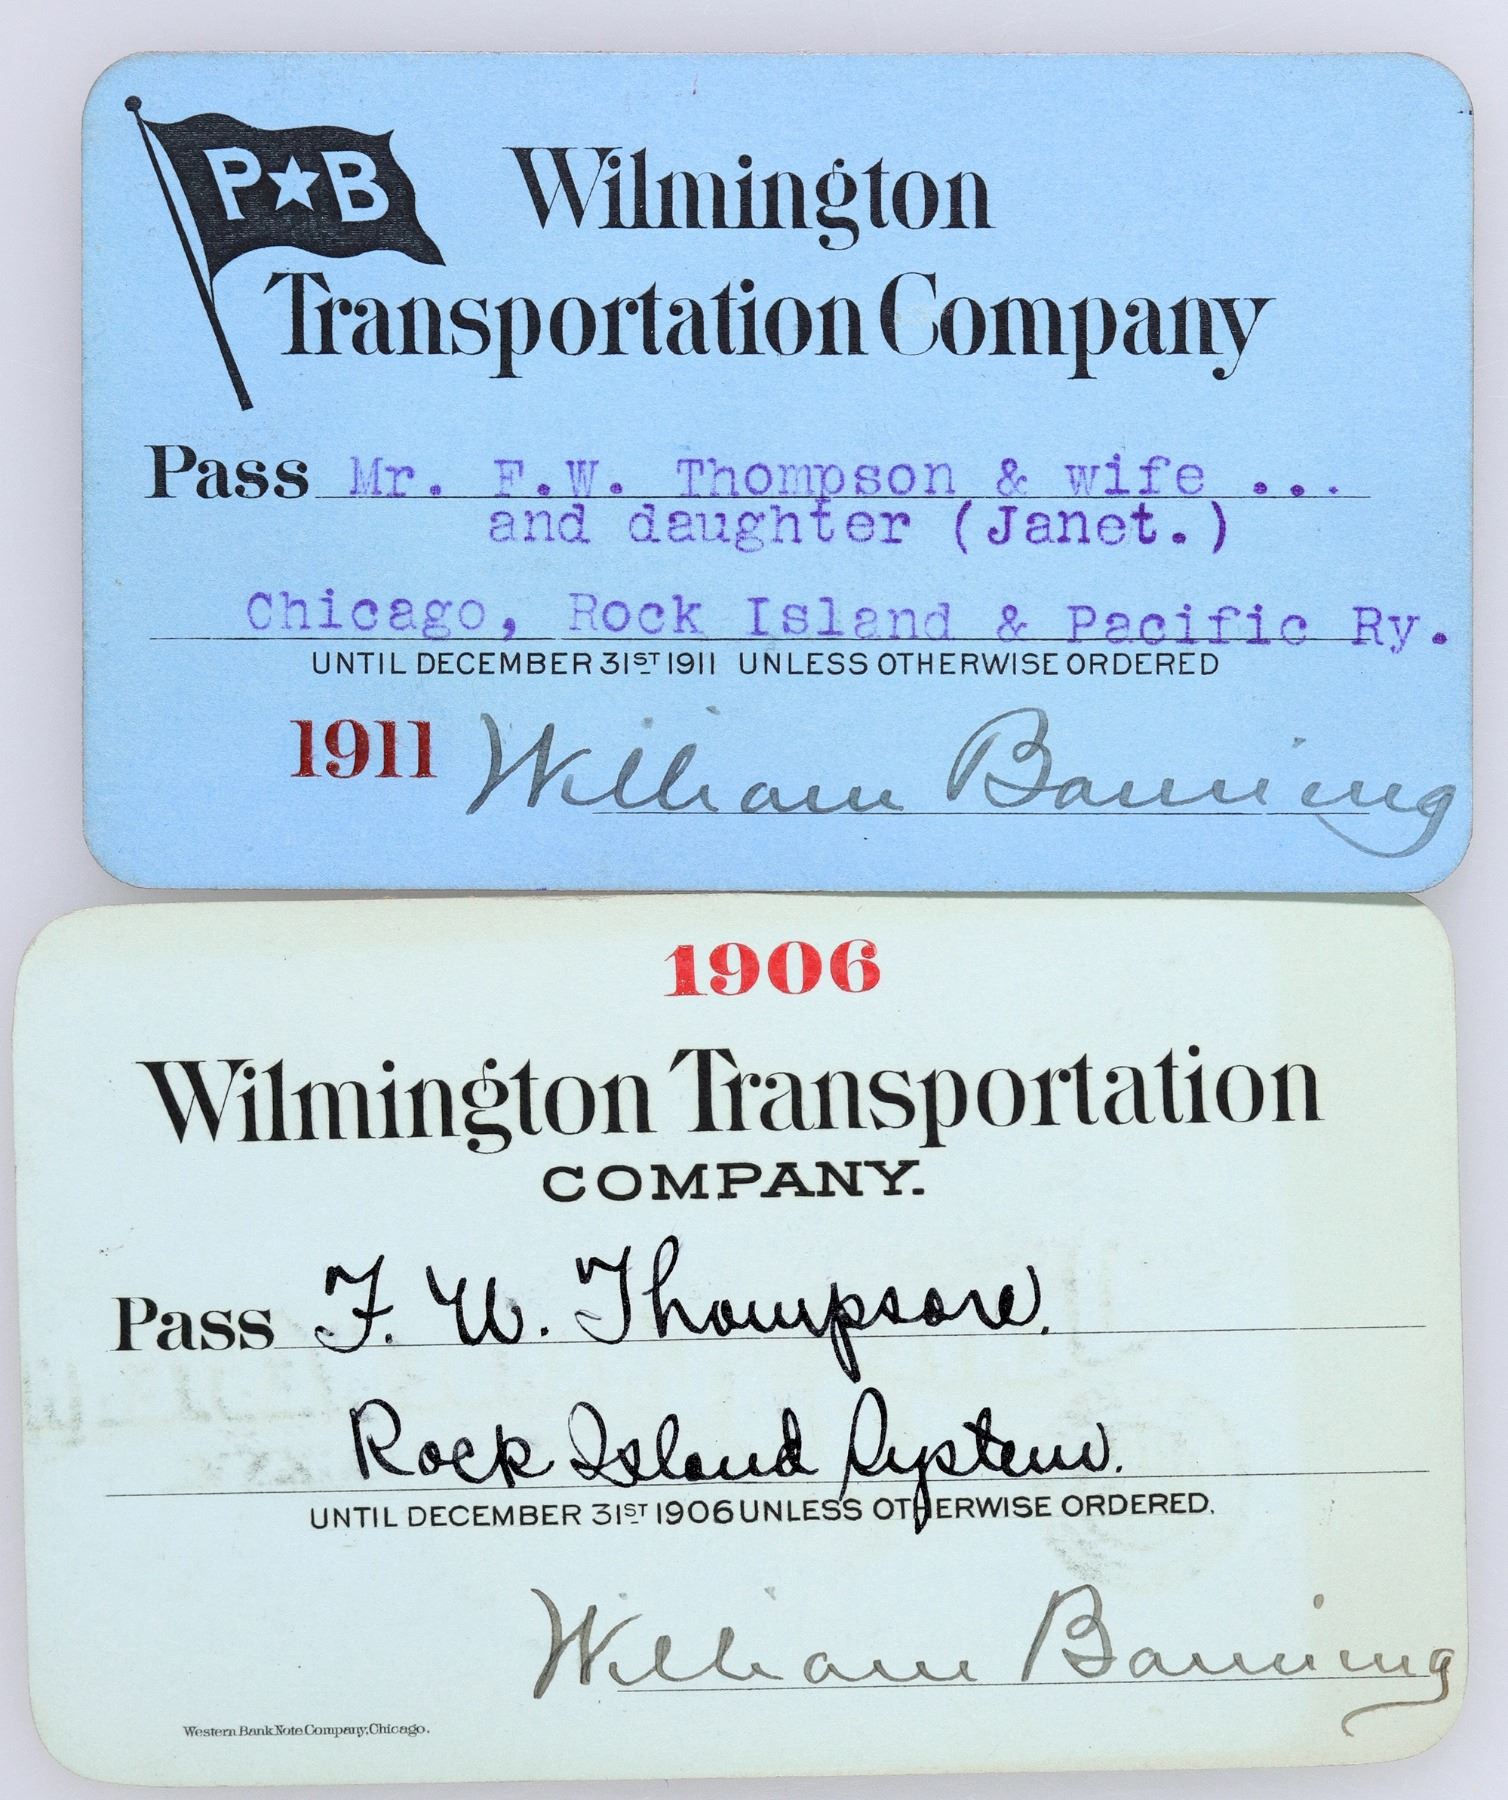 P★B
Wilmington
Transportation Company
Pass Mr. F.W. Thompson & wife ...
and daughter (Janet.)
Chicago, Rock Island & Pacific Ry.
UNTIL DECEMBER 31ST 1911 UNLESS OTHERWISE ORDERED
1911 William Banning
1906
Wilmington Transportation
COMPANY.
Pass F. W. Thompson.
Rock Island System.
UNTIL DECEMBER 31ST 1906 UNLESS OTHERWISE ORDERED.
William Banning
Western Bank Note Company, Chicago.